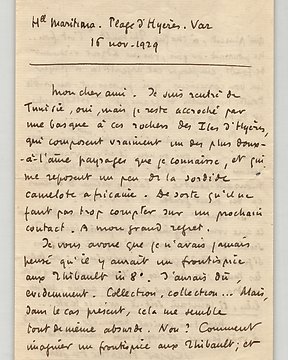 Hel Maritima. Plage d'Hyères. Var
16 nov. 1929
Mon cher ami. Je suis rentré de
Tunisie, oui, mais je reste accroché par
une basque à ces rochers des Iles d'Hyères,
qui composent vraiment un des plus doux-
à-l'âme paysages que je connaisse, et qui
me reposent un peu de la sordide
camelote africaine. De sorte qu'il ne
faut pas trop compter sur un prochain
contact. A mon grand regret.
Je vous avoue que je n'avais jamais
pensé qu'il y aurait un frontispice
aux Thibault in 8°. J'aurais dû
évidemment. Collection, collection... Mais,
dans le cas présent, cela me semble
tout de même absurde. Non? Comment
imaginer un frontispice aux Thibault; et